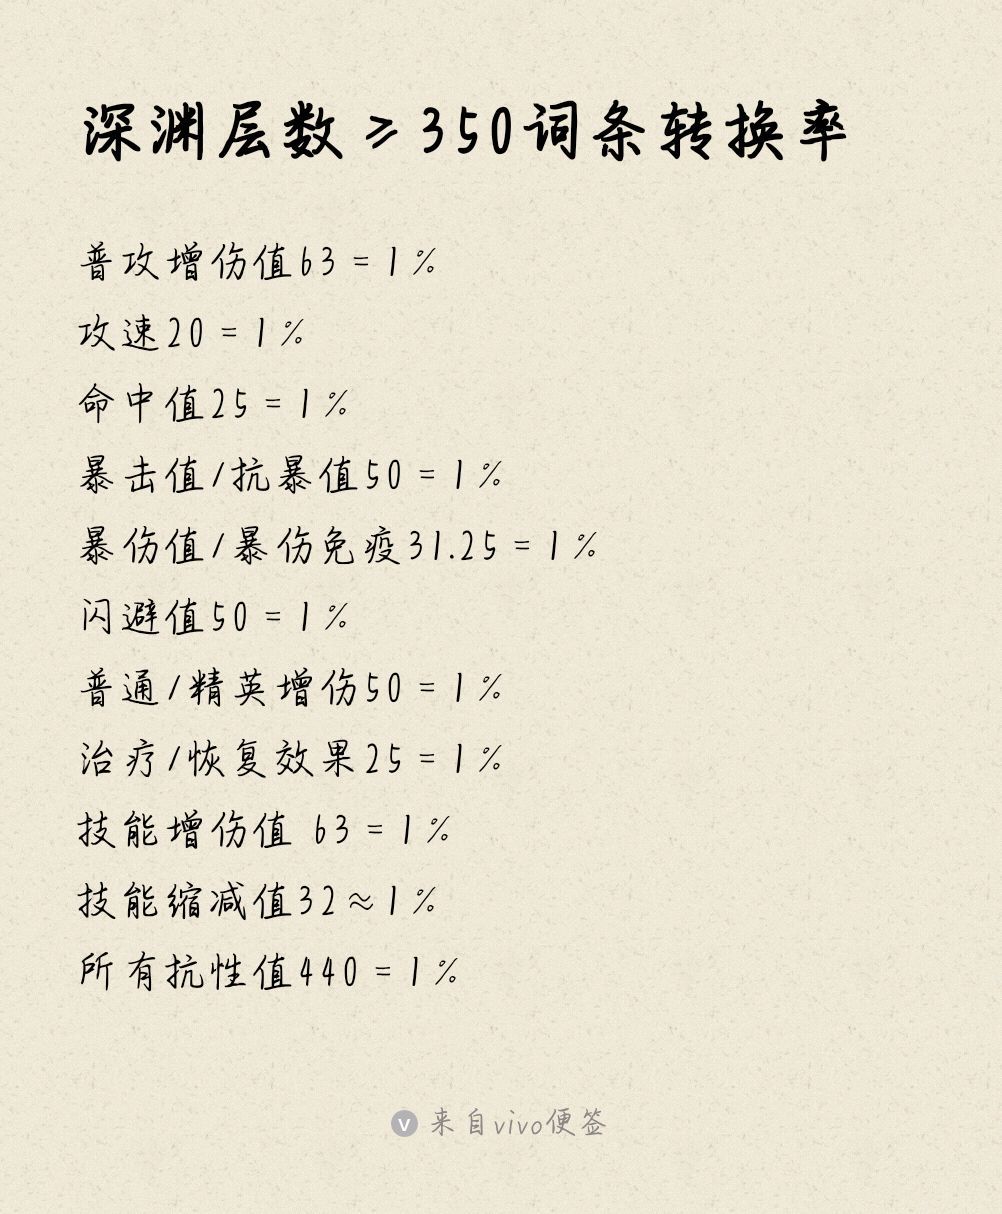 深渊层数≥350词条转换率
普攻增伤值63=1%
攻速20=1%
命中值25=1%
暴击值/抗暴值50=1%
暴伤值/暴伤免疫31.25=1%
闪避值50=1%
普通/精英增伤50=1%
治疗/恢复效果25=1%
技能增伤值 63=1%
技能缩减值32≈1%
所有抗性值440=1%
v 来自vivo便签